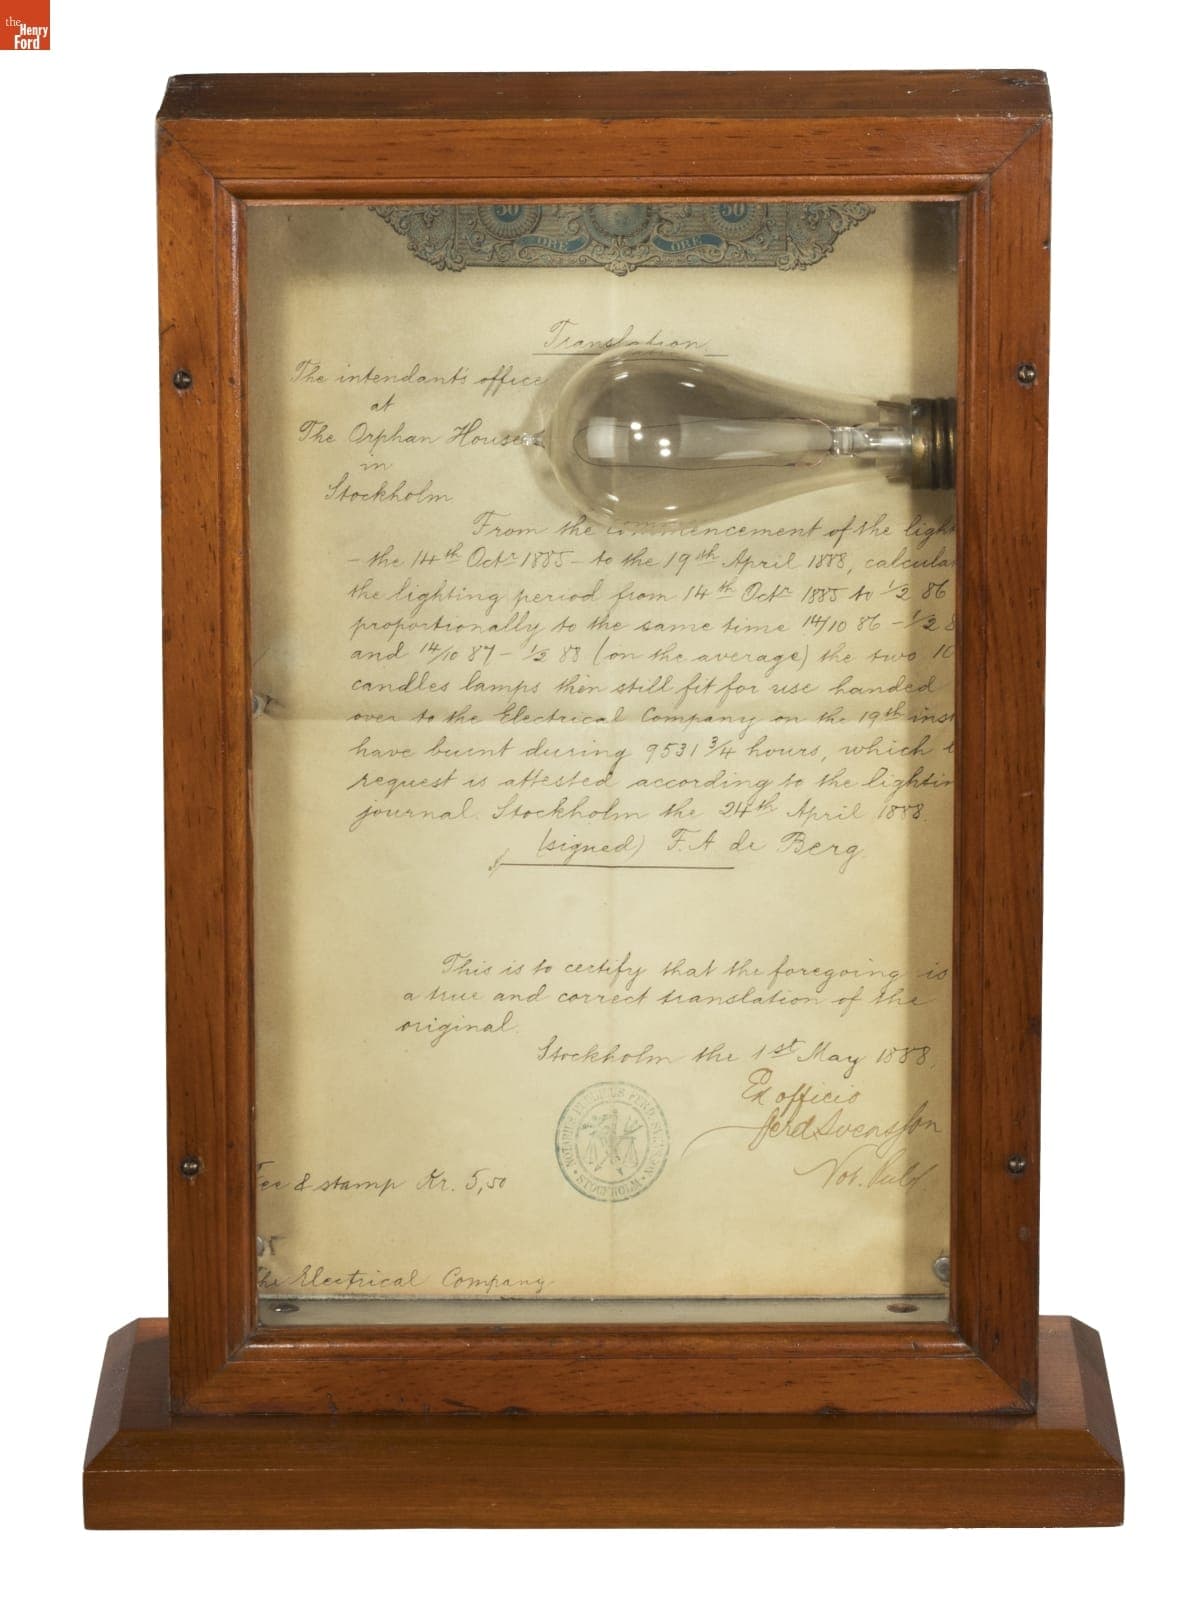 the
Henry
Ford
50 50
ÖRE ÖRE
Translation
The intendant's office
at
The Orphan House
in
Stockholm
From the commencement of the light
- the 14th Octr 1885 - to the 19th April 1888, calcula
the lighting period from 14th Octr 1885 to 1/2 86
proportionally to the same time 14/10 86 - 1/2 8
and 14/10 87 - 1/2 88 (on the average) the two 10
candles lamps then still fit for use handed
over to the Electrical Company on the 19th inst
have burnt during 9531 3/4 hours, which
request is attested according to the lightin
journal. Stockholm the 24th April 1888.
(signed) F. A de Berg
This is to certify that the foregoing is
a true and correct translation of the
original.
Stockholm the 1st May 1888.
Ex officio
Ferd Svensson
Not. Publ.
NOTARIUS PUBLICUS FERD. SVENSSON
STOCKHOLM
Fee & stamp Kr. 5,50
The Electrical Company